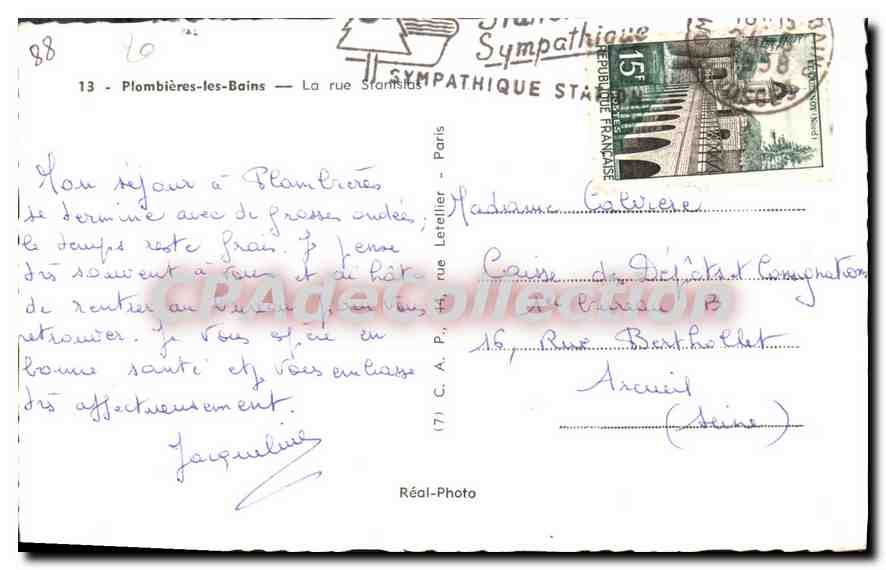 88
13 - Plombières-les-Bains — La rue Stanislas
Sympathique
SYMPATHIQUE STATION
15F
POSTES
REPUBLIQUE FRANÇAISE
LE QUESNOY (Nord)
VOSGES
Mon séjour à Plombières
se termine avec de grosses ondées,
le temps reste frais. Je pense
très souvent à vous et ai hâte
de rentrer au bureau pour vous
retrouver. Je vous espère en
bonne santé et je vous embrasse
très affectueusement.
Jacqueline
(7) C. A. P., 44, rue Letellier - Paris
Madame
Caisse des Dépôts et Consignations
bureau B
16, Rue Berthollet
Arcueil
(Seine)
Réal-Photo
CPAdeCollection.com